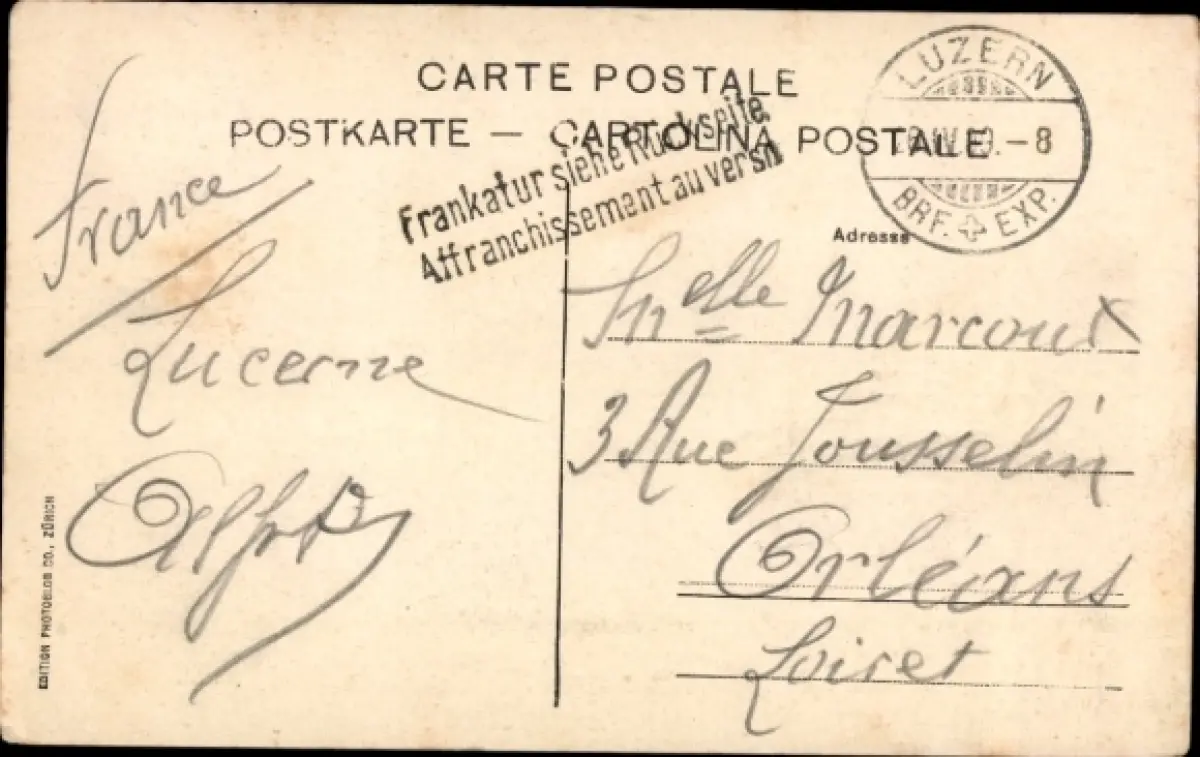 CARTE POSTALE
POSTKARTE — CARTOLINA POSTALE
Frankatur siehe Rückseite.
Affranchissement au verso
LUZERN
–8
BRF. EXP.
Adresse
France
Lucerne
Melle Marcoux
3 Rue Jousselin
Orléans
Loiret
EDITION PHOTOGLOB CO., ZÜRICH